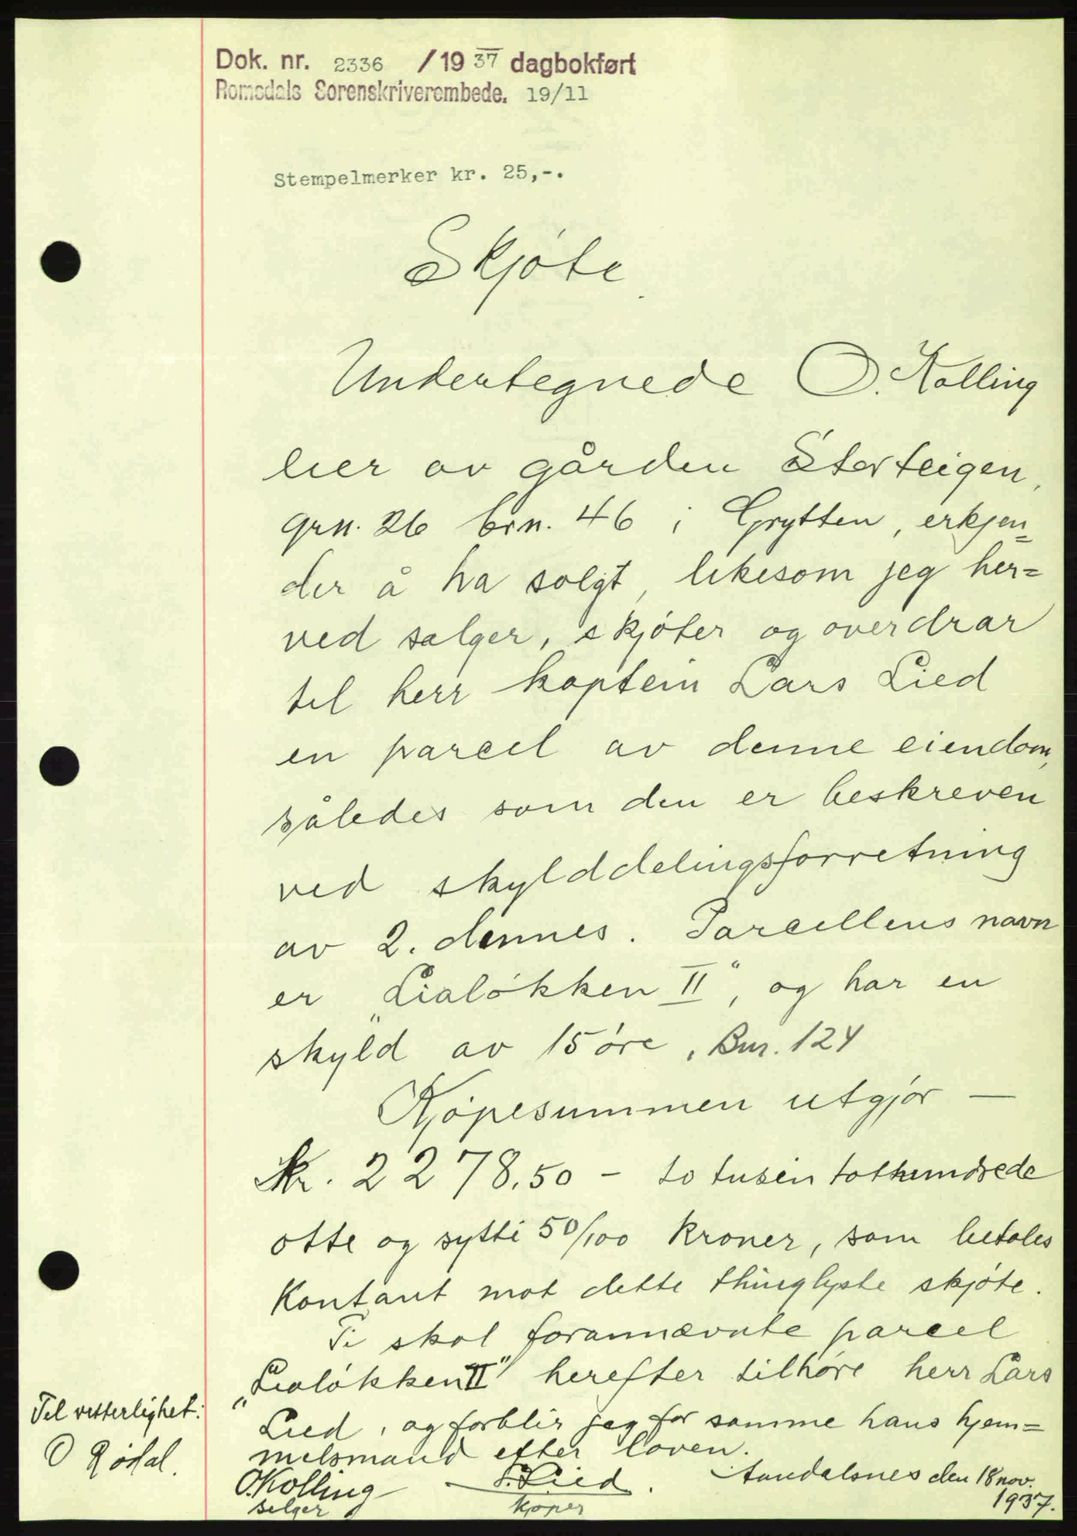 Dok. nr. 2336 /19 37 dagbokført
Romsdals Sorenskriverembede. 19/11
Stempelmerker kr. 25,-.
Skjøte.
Undertegnede O. Kolling
eier av gården Storteigen,
grn. 26 brn. 46 i Grytten, erkjen=
der å ha solgt, likesom jeg her=
ved sælger, skjøter og overdrar
til herr kaptein Lars Lied
en parcel av denne eiendom,
således som den er beskreven
ved skylddelingsforretning
av 2. dennes. Parcellens navn
er „Lialøkken II“, og har en
skyld av 15 øre, Bnr. 124
Kjøpesummen utgjør —
Kr. 2278.50 - to tusen tohundrede
otte og sytti 50/100 kroner, som betales
kontant mot dette thinglyste skjøte.
Ti skal forannævnte parcel
„Lialøkken II“ herefter tilhøre herr Lars
Lied, og forblir jeg for samme hans hjem=
melsmand efter loven.
Åndalsnes den 18 nov. 1937.
Til vitterlighet:
O Rødal.
O. Kolling
selger
L. Lied.
kjøper